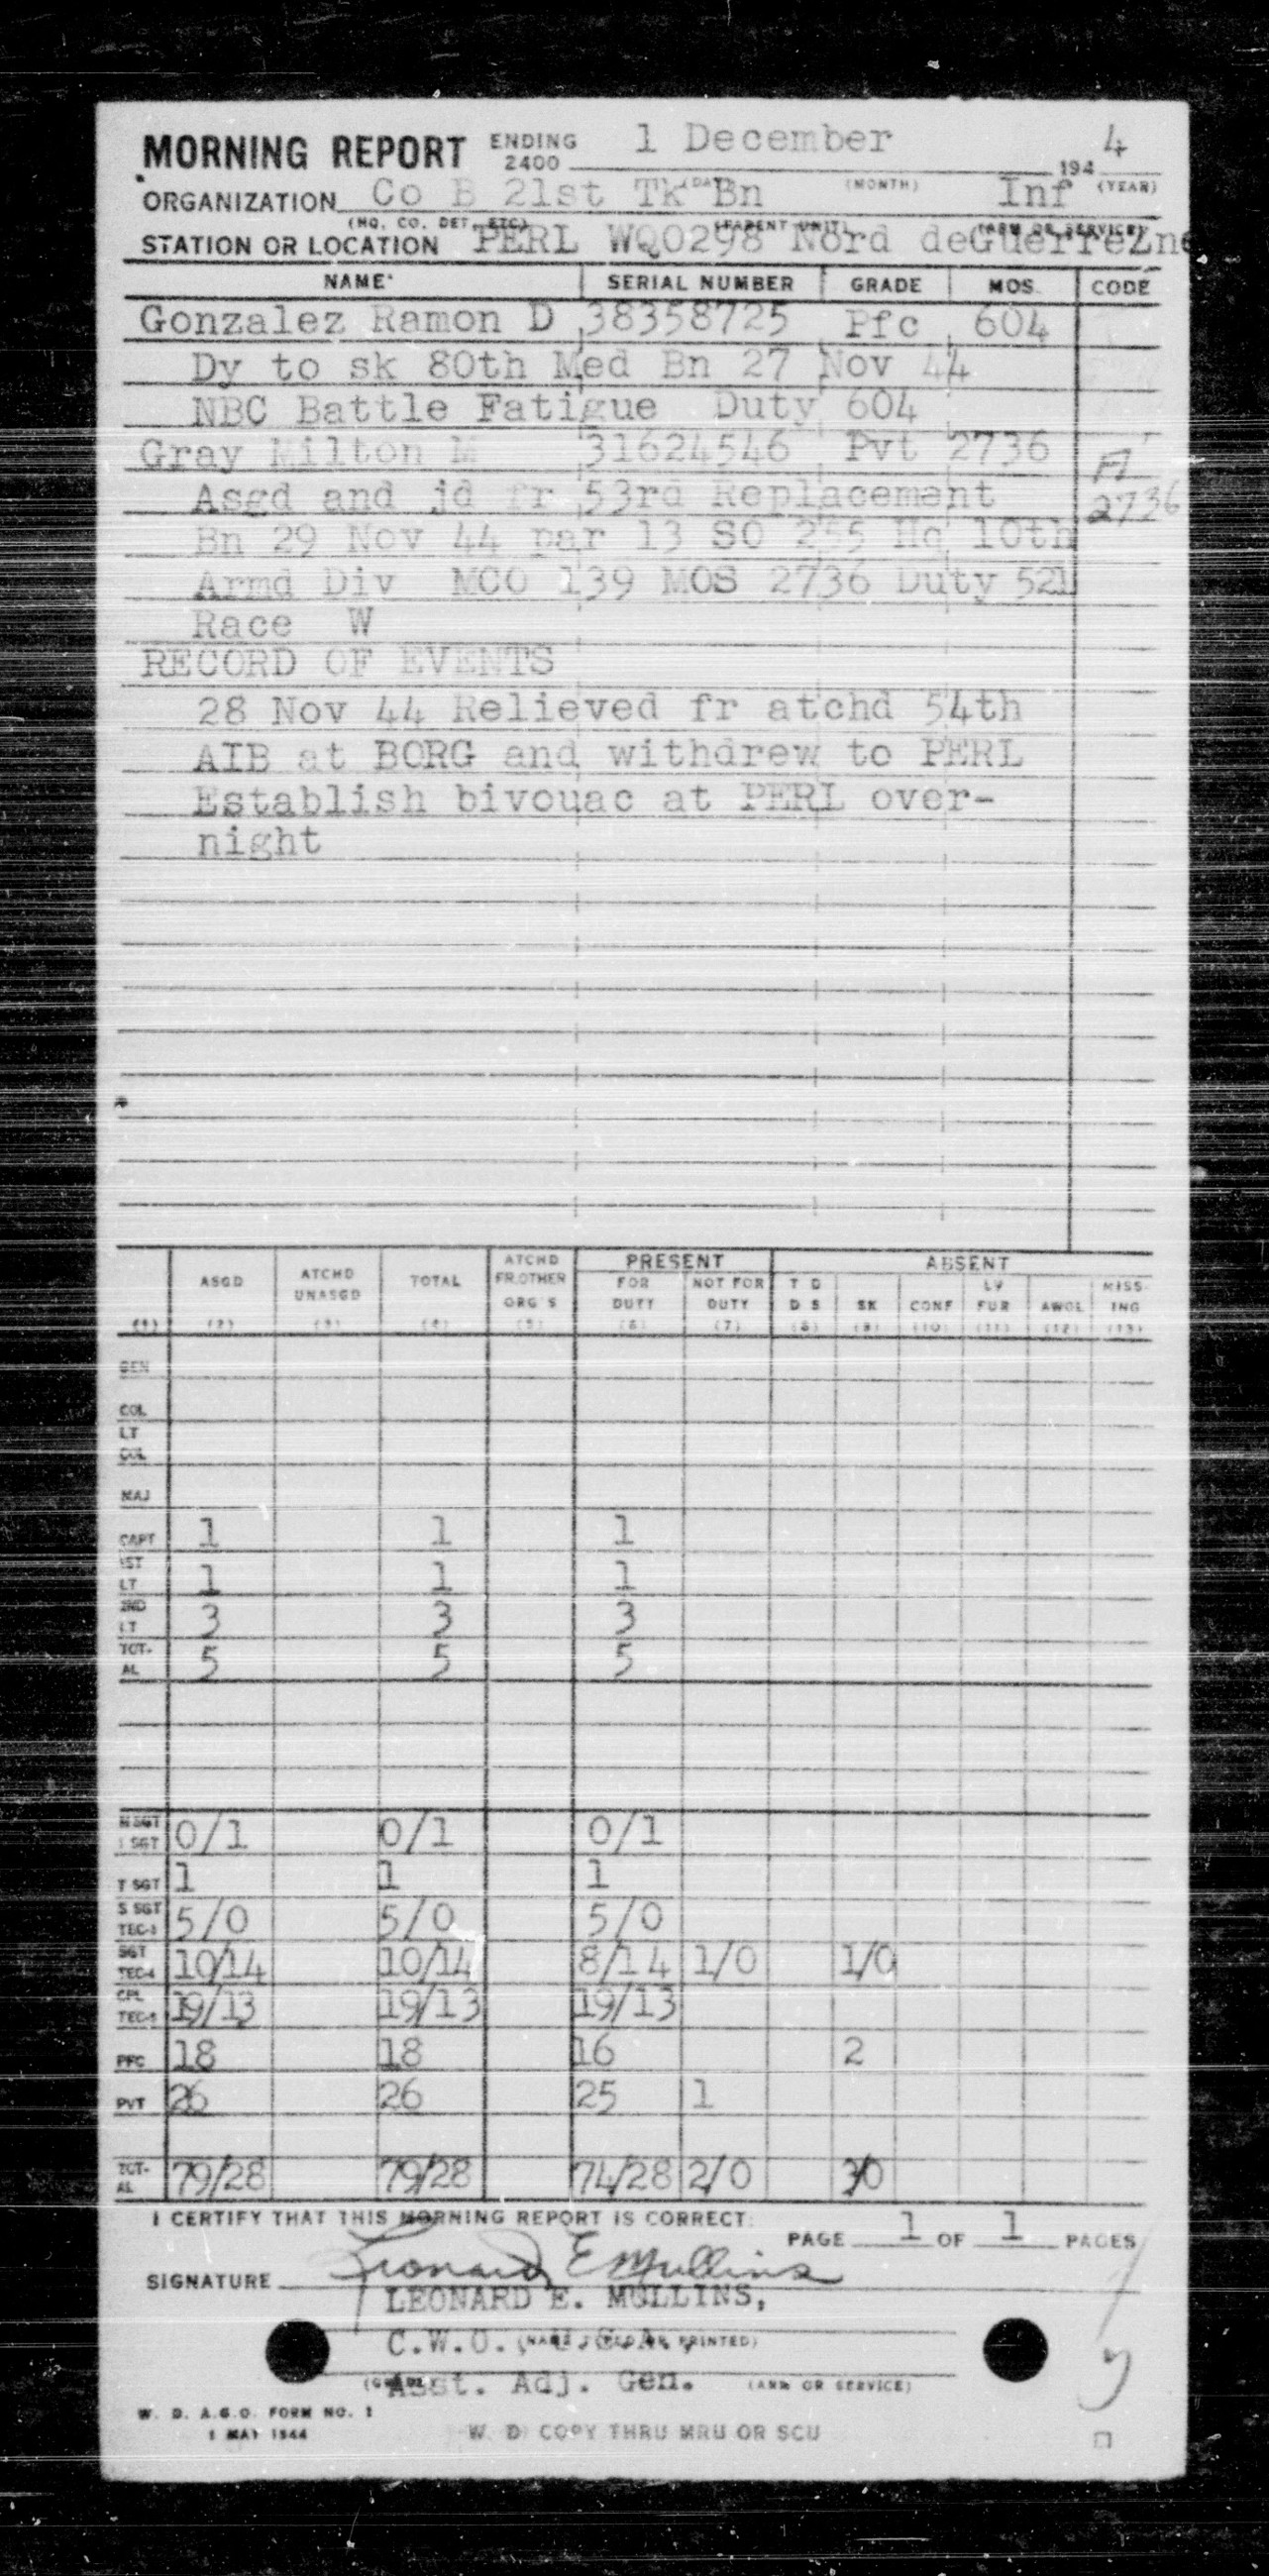 MORNING REPORT ENDING 2400 1 December 194 4
(DAY) (MONTH) (YEAR)
ORGANIZATION Co B 21st Tk Bn Inf
(HQ. CO. DET. ETC) (PARENT UNIT) (ARM OR SERVICE)
STATION OR LOCATION PERL WQ0298 Nord deGuerreZne
NAME SERIAL NUMBER GRADE MOS. CODE
Gonzalez Ramon D 38358725 Pfc 604
Dy to sk 80th Med Bn 27 Nov 44
NBC Battle Fatigue Duty 604
Gray Milton M 31624546 Pvt 2736
Asgd and jd fr 53rd Replacement 2736
Bn 29 Nov 44 par 13 SO 255 Hq 10th
Armd Div MCO 139 MOS 2736 Duty 521
Race W
RECORD OF EVENTS
28 Nov 44 Relieved fr atchd 54th
AIB at BORG and withdrew to PERL
Establish bivouac at PERL over-
night
PRESENT ABSENT
ASGD ATCHD UNASGD TOTAL ATCHD FR.OTHER ORG'S FOR DUTY NOT FOR DUTY T D D S SK CONF LV FUR AWOL MISS-ING
(1) (2) (3) (4) (5) (6) (7) (8) (9) (10) (11) (12) (13)
GEN
COL
LT COL
MAJ
CAPT 1 1 1
1ST LT 1 1 1
2ND LT 3 3 3
TOT-AL 5 5 5
M SGT 1 SGT 0/1 0/1 0/1
T SGT 1 1 1
S SGT TEC-3 5/0 5/0 5/0
SGT TEC-4 10/14 10/14 8/14 1/0 1/0
CPL TEC-5 19/13 19/13 19/13
PFC 18 18 16 2
PVT 26 26 25 1
TOT-AL 79/28 79/28 74/28 2/0 3/0
I CERTIFY THAT THIS MORNING REPORT IS CORRECT:
PAGE 1 OF 1 PAGES
SIGNATURE Leonard E Mullins
LEONARD E. MULLINS,
C.W.O., U.S.A.,
(NAME TYPED OR PRINTED)
Asst. Adj. Gen.
(GRADE) (ARM OR SERVICE)
W. D. A.G.O. FORM NO. 1
1 MAY 1944
W. D. COPY THRU MRU OR SCU